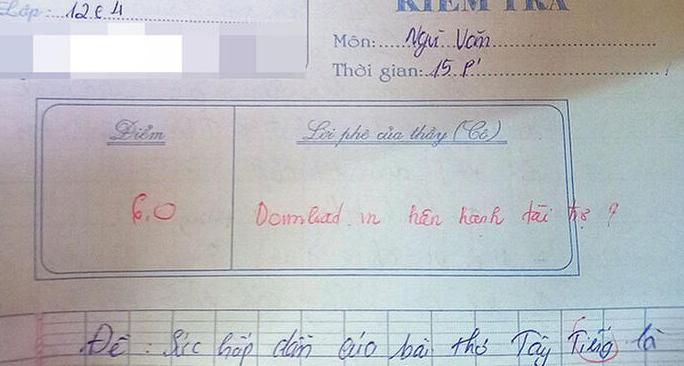 Lớp: 12C4
KIỂM TRA
Môn: Ngữ Văn
Thời gian: 15 P'
Điểm
Lời phê của thầy (Cô)
6.0
Download.vn hân hạnh tài trợ ?
Đề : Sức hấp dẫn của bài thơ Tây Tiếng là